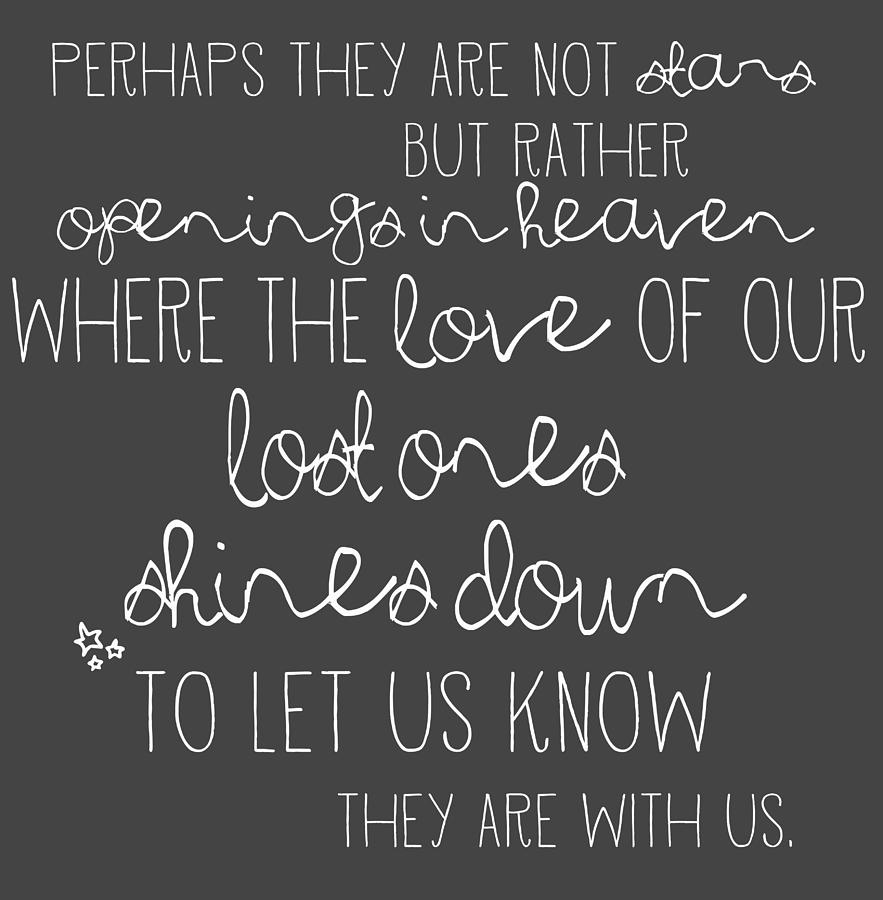 PERHAPS THEY ARE NOT stars
BUT RATHER
openings in heaven
WHERE THE love OF OUR
lost ones
shines down
TO LET US KNOW
THEY ARE WITH US.